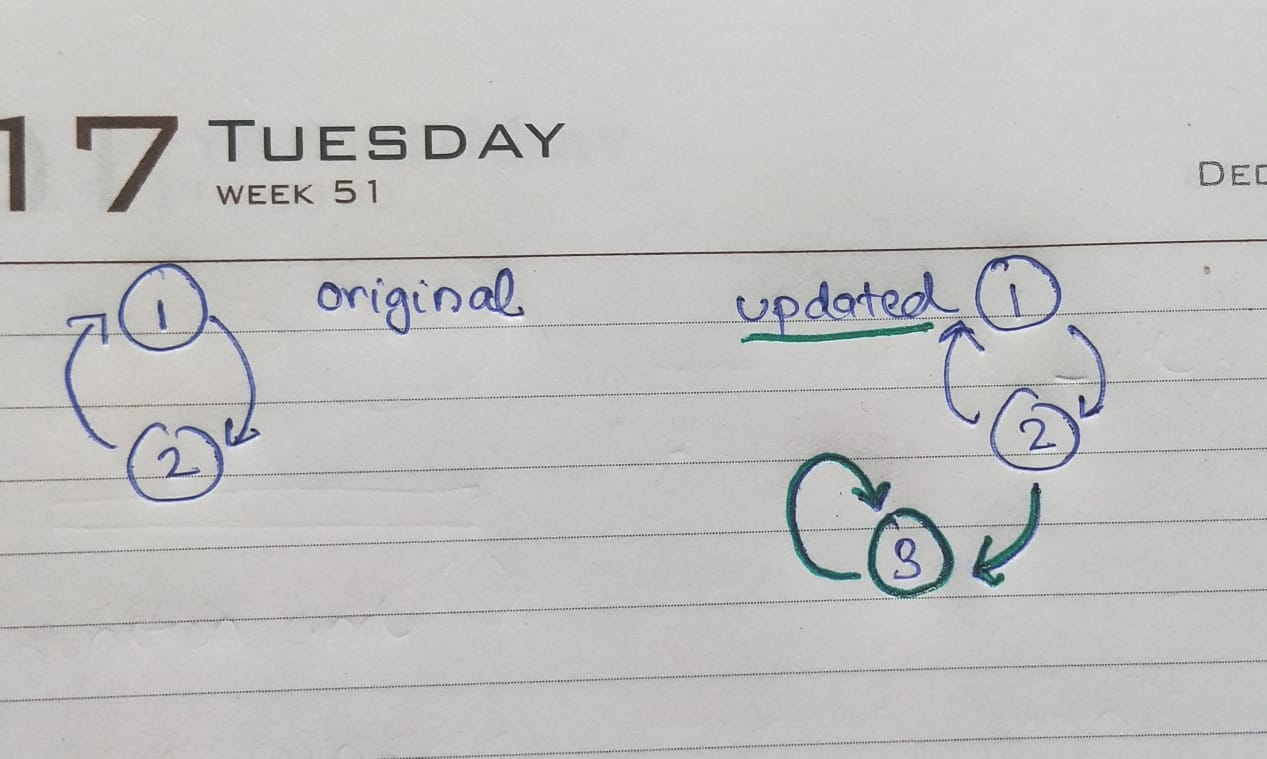 17 TUESDAY
WEEK 51
DEC
1 original updated 1
2 2
3